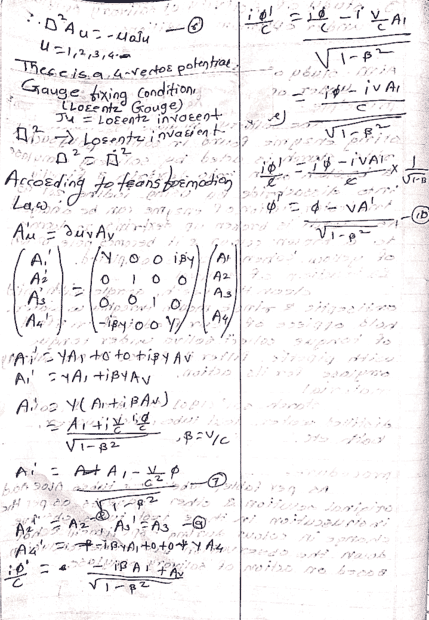 ∴ □²Aμ = -μ₀Jμ —⑤
μ = 1,2,3,4.
There is a 4-vector potential.
Gauge fixing condition,
(Lorentz Gauge)
Jμ = Lorentz invarent
□² → Lorentz invarient
□² = □'²
According to transformation
Law :
A'μ = aμνAν
(A₁' A₂' A₃' A₄') = (γ 0 0 iβγ / 0 1 0 0 / 0 0 1 0 / -iβγ 0 0 γ) (A₁ A₂ A₃ A₄)
A₁' = γA₁ + 0 + 0 + iβγ Aν
A₁' = γA₁ + iβγAν
A₁' = γ(A₁ + iβAν)
= A₁ + i v/c iφ/c / √1-β² , β = v/c
A₁' = A₁ - v/c² φ / √1-β² —⑦
A₂' = A₂ —⑧ A₃' = A₃ —⑨
A₄' = -iβγA₁ + 0 + 0 + γA₄
iφ'/c = -iβA₁ + Aν / √1-β²
iφ'/c = iφ/c - i v/c A₁ / √1-β²
= iφ - ivA₁ / c / √1-β²
iφ'/c = iφ - ivA₁ / c × 1/√1-β
φ' = φ - vA' / √1-β² —⑩